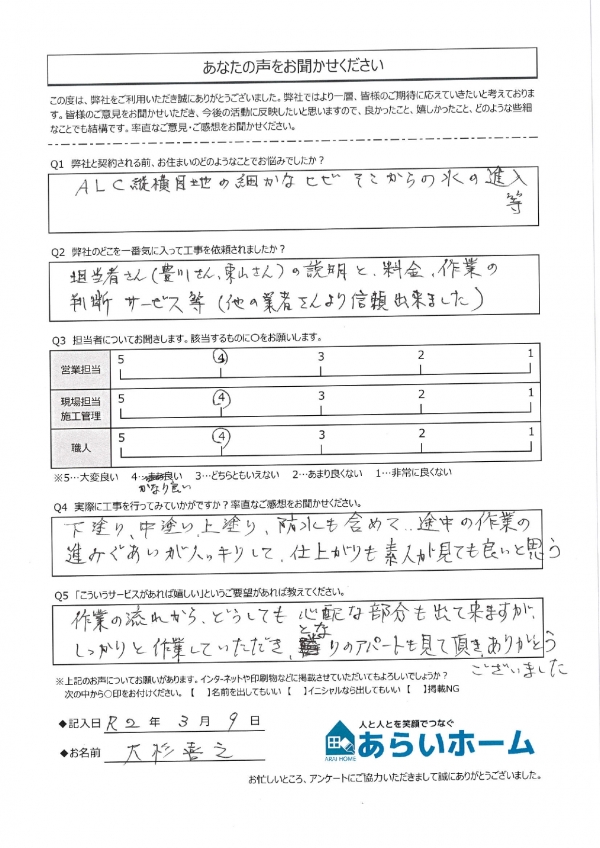 あなたの声をお聞かせください
この度は、弊社をご利用いただき誠にありがとうございました。弊社ではより一層、皆様のご期待に応えていきたいと考えておりま
す。皆様のご意見をお聞かせいただき、今後の活動に反映したいと思いますので、良かったこと、嬉しかったこと、どのような些細
なことでも結構です。率直なご意見・ご感想をお聞かせください。
Q1 弊社と契約される前、お住まいのどのようなことでお悩みでしたか？
ALC縦横目地の細かなヒビ そこからの水の進入
等
Q2 弊社のどこを一番気に入って工事を依頼されましたか？
担当者さん(豊川さん、東山さん)の説明と、料金、作業の
判断 サービス等(他の業者さんより信頼出来ました)
Q3 担当者についてお聞きします。該当するものに○をお願いします。
営業担当 5 4 3 2 1
現場担当 5 4 3 2 1
施工管理
職人 5 4 3 2 1
※5…大変良い 4…まあ良い 3…どちらともいえない 2…あまり良くない 1…非常に良くない
かなり良い
Q4 実際に工事を行ってみていかがですか？率直なご感想をお聞かせください。
下塗り、中塗り、上塗り、防水も含めて、途中の作業の
進みぐあいがハッキリして、仕上がりも素人が見ても良いと思う
Q5 「こういうサービスがあれば嬉しい」というご要望があれば教えてください。
作業の流れから、どうしても心配な部分も出て来ますが、
しっかりと作業していただき、となりのアパートも見て頂き、ありがとう
ございました
※上記のお声についてお願いがあります。インターネットや印刷物などに掲載させていただいてもよろしいでしょうか？
次の中から○印をお付けください。【 】名前を出してもいい 【 】イニシャルなら出してもいい 【 】掲載NG
◆記入日 R2 年 3 月 9 日
◆お名前 大杉喜之
人と人とを笑顔でつなぐ
ARAI HOME あらいホーム
お忙しいところ、アンケートにご協力いただきまして誠にありがとうございました。